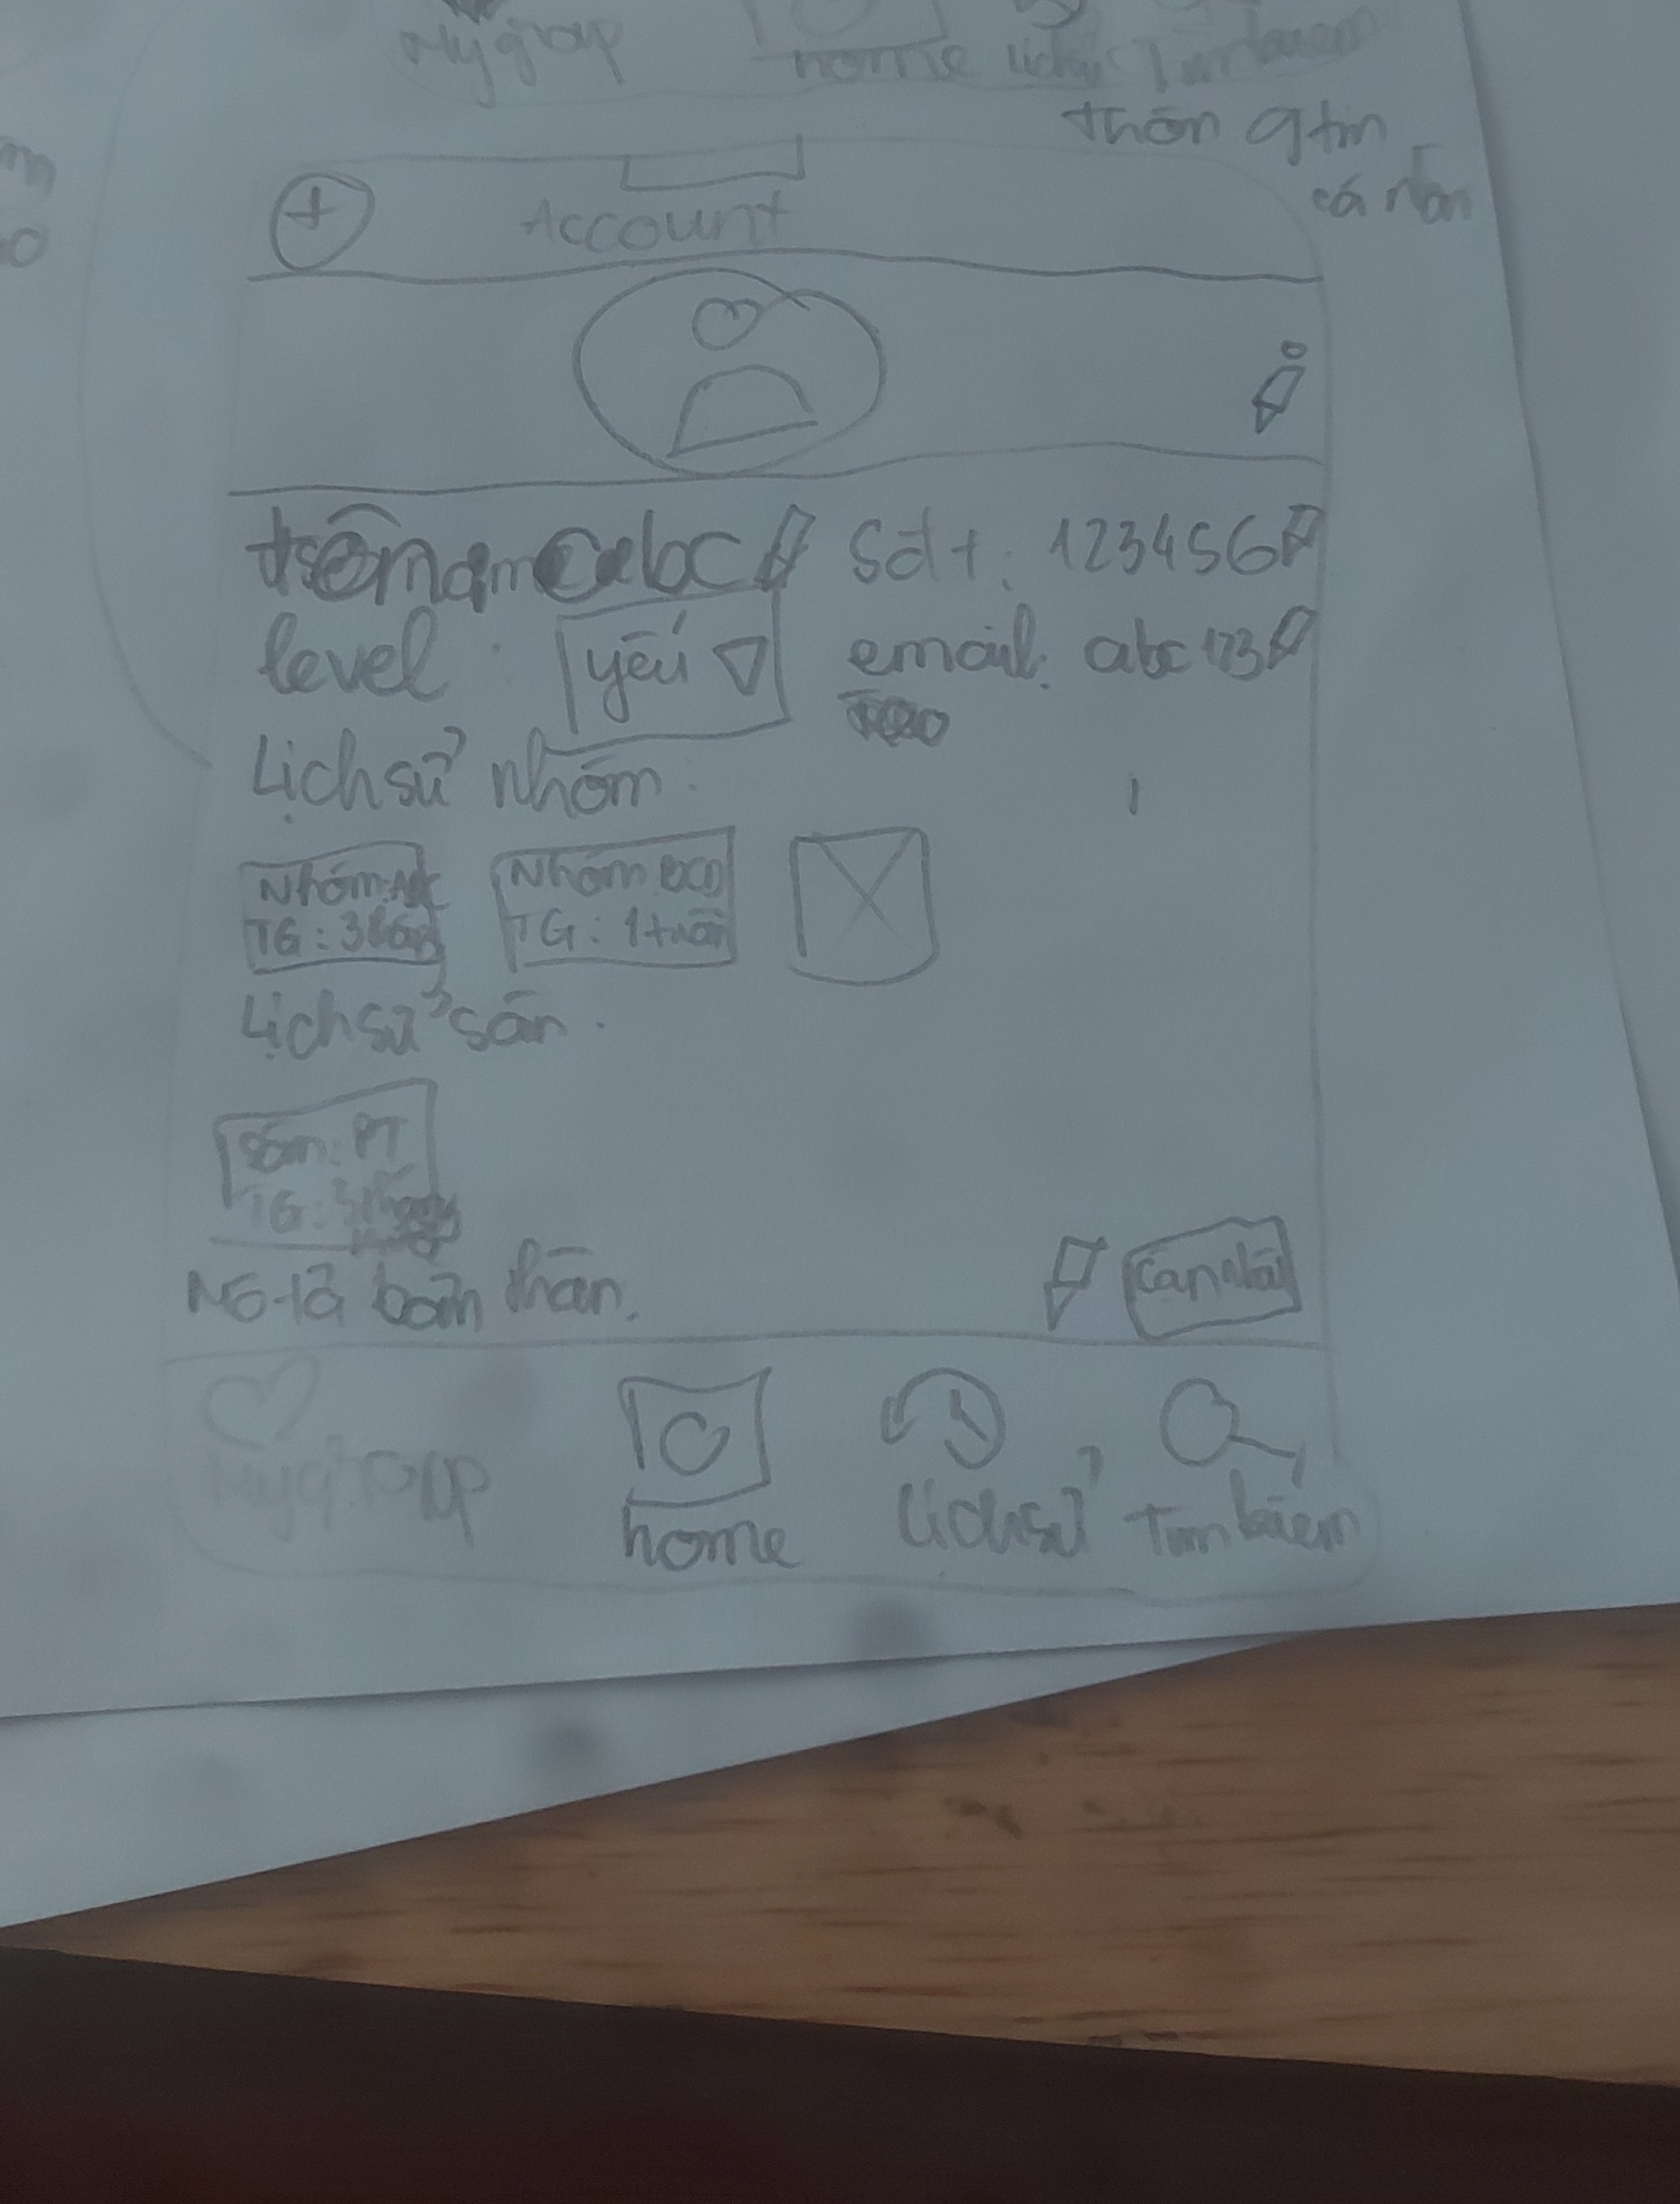 My group home lịch sử
thôn gtin
cá nhân
Account
abc sđt: 123456
level: yếu email: abc123
Lịch sử nhóm:
Nhóm: ABC Nhóm BCD
TG: 3 TG: 1 tuần
Lịch sử sân:
Sân: PT
TG: 3
Mô tả bản thân.
My group home lịch sử Tìm kiếm